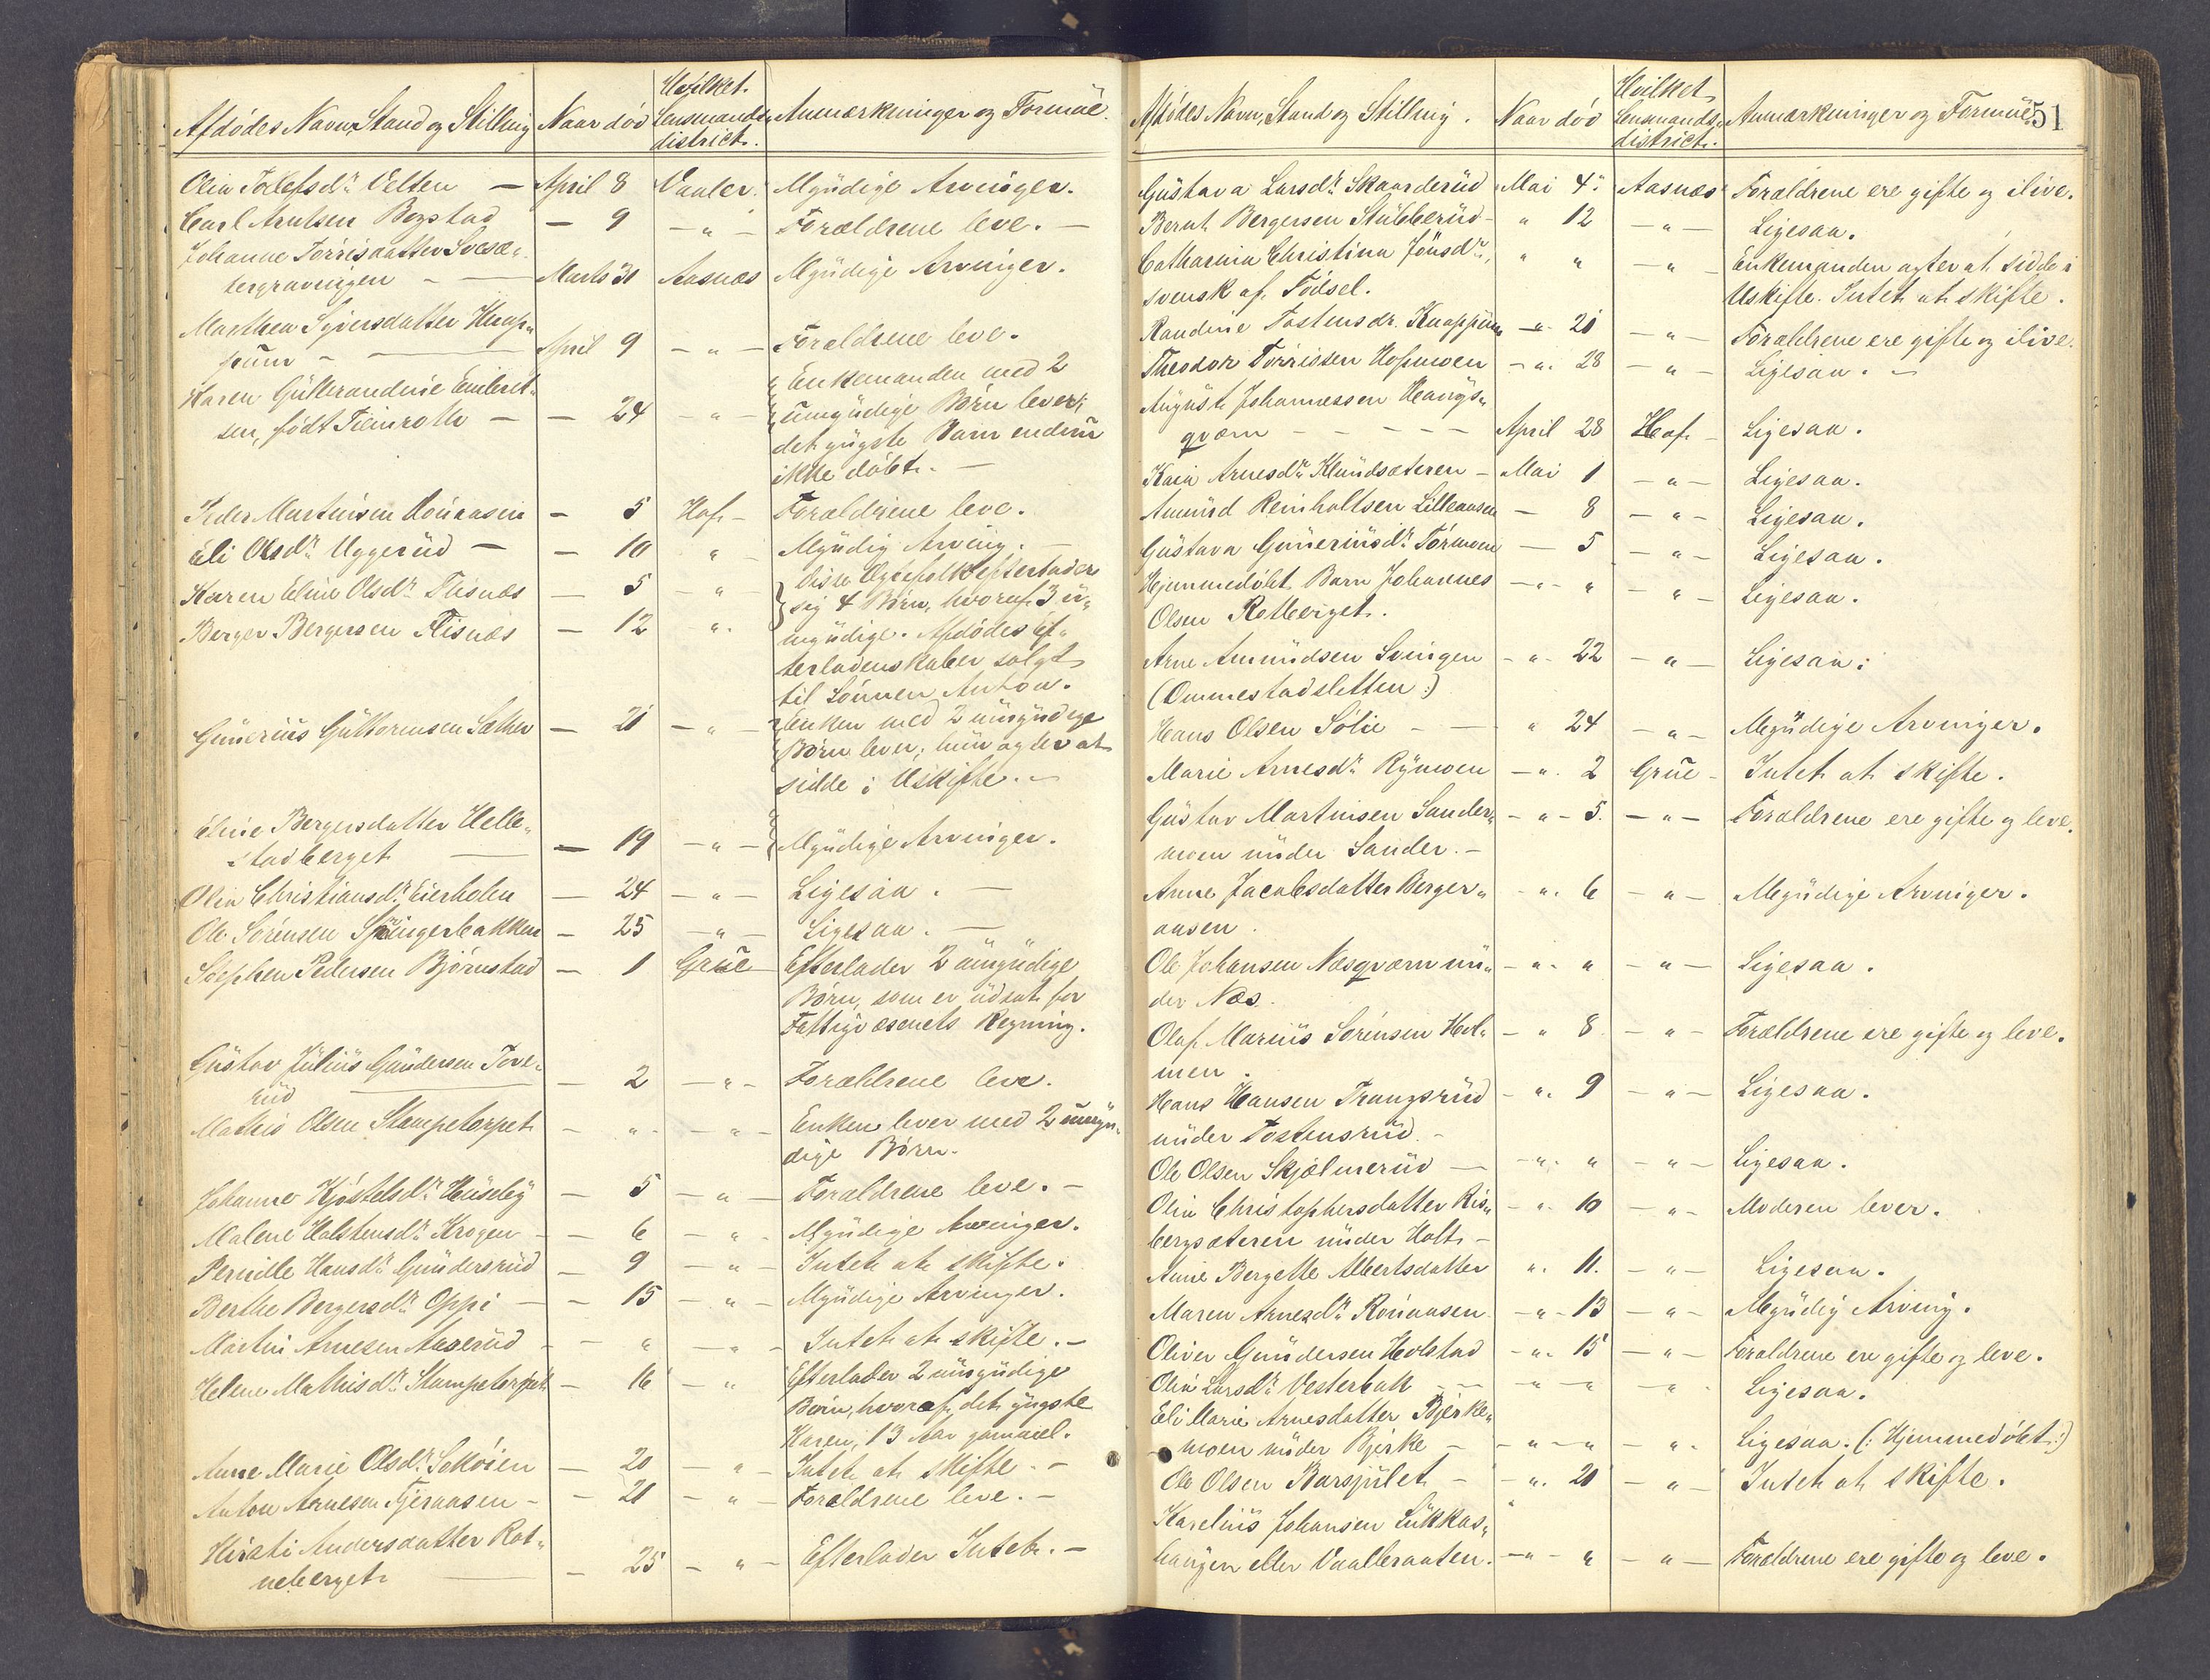 Afdödes Navn, Stand og Stilling Naar död Hvilket Lensmands district. Anmærkninger og Formue.
Olia Tollefsdr. Velten — April 8 Vaaler. Myndige Arvinger.
Carl Arntsen Bogstad — 9 — " — Forældrene leve. —
Johanne Torrisdatter Svesæ„
tergravingen — Marts 31 Aasnæs Myndige Arvinger.
Marthea Syversdatter Knap„
pum — April 9 — " — Forældrene leve.
Karen Gulbrandine Embret„ Enkemanden med 2
sen, födt Fienroth — — 24 — " — umyndige Börn lever;
det yngste Barn endnu
ikke döbt. —
Peder Martinsen Rönaasen — 5 Hof — Forældrene leve.
Eli Olsdr. Uggerud — — 10 " — Myndig Arving. —
Karen Eline Olsdr. Flisnæs — 5 — " disse Ægtefolk efterlader
sig 4 Börn, hvoraf 3 u„
Berger Bergersen Flisnæs — 12 " myndige. Afdödes Ef„
terladenskaber solgt
til Sönnen Anton.
Gunerius Guttormsen Sæther — 21 — " — Enken med 2 umyndige
Börn lever; hun agter at
sidde i Uskifte. —
Eline Bergersdatter Helle„
stadberget — — 19 — " — Myndige Arvinger.
Olia Christiansdr. Eierholen — 24 — " — Ligesaa. —
Ole Sörensen Springerbakken — 25 — " — Ligesaa. —
Stephen Pedersen Björnstad — 1 Grue Efterlader 2 umyndige
Börn, som er udsat for
Fattigvæsenets Regning.
Gustav Julius Gundersen Tove„
rud — — 2 — " — Forældrene leve.
Mathis Olsen Stampetorpet — " — " — Enken lever med 2 umyn„
dige Börn.
Johanne Kjöstelsdr. Huseby — 5 — " — Forældrene leve. —
Malene Halstensdr. Krogen — 6 — " — Myndige Arvinger.
Pernille Hansdr. Gundersrud — 9 — " — Intet at skifte.
Berthe Bergersdr. Oppi — — 15 — " — Myndige Arvinger.
Martin Arnesen Aaserud — " — " — Intet at skifte. —
Helene Mathisdr. Stampetorpet — 16 — " Efterlader 2 umyndige
Börn, hvoraf det yngste
Karen, 13 Aar gammel.
Anne Marie Olsdr. Soköien — 20 — " — Intet at skifte. —
Anton Arnesen Tjeraasen — — 21 — " — Forældrene leve. —
Kirsti Andersdatter Rot„
neberget — — 25 — " — Efterlader Intet. —
Afdödes Navn, Stand og Stilling. Naar död Hvilket Lensmands„ district. Anmærkninger og Formue. 51
Gustava Larsdr. Skaarderud Mai 4 Aasnæs Forældrene ere gifte og ilive.
Bernt Bergersen Stubberud — " 12 — " — Ligesaa.
Catharina Christina Jönsdr., " " — " — Enkemanden agter at sidde i
svensk af Födsel. Uskifte. Intet at skifte.
Randine Tostensdr. Knappum — " 21 — " — Forældrene ere gifte og ilive.
Theodor Törrissen Hofmoen — " 28 — " — Ligesaa. —
August Johannessen Haugs„
qværn — — — — — April 28 Hof — Ligesaa.
Kaia Arnesdr. Klundsæteren — Mai 1 — " — Ligesaa.
Amund Reinholtsen Lilleaasen — 8 — " — Ligesaa.
Gustava Guneriusdr. Törmoen — 5 — " — Ligesaa.
Hjemmedöbt Barn Johannes — " " — " — Ligesaa.
Olsen Rotberget.
Arne Amundsen Svingen — " 22 — " — Ligesaa.
(Ommestadsletten:)
Hans Olsen Solie — — " 24 — " — Myndige Arvinger.
Marie Arnesdr. Rymoen — " 2 Grue — Intet at skifte.
Gustav Martinsen Sander„ — " — 5. — " — Forældrene ere gifte og leve.
moen under Sander. —
Anne Jacobsdatter Berger„ — " 6 — " — Myndige Arvinger.
aasen.
Ole Johansen Næsqværn un„ — " " — " — Ligesaa.
der Næs.
Olaf Marius Sörensen Hol„ — " 8 — " — Forældrene ere gifte og leve.
men.
Hans Hansen Trangsrud — " 9 — " — Ligesaa.
under Tostensrud. —
Ole Olsen Skjölmerud — — " " — " — Ligesaa.
Olia Christophersdatter Ris„ — " 10 — " — Moderen lever.
bergsæteren under Holt —
Anne Bergette Albertsdatter " 11. — " — Ligesaa.
Maren Arnesdr. Rönaasen — " — 13 — " — Myndig Arving.
Oliver Gundersen Holstad — " 15 — " — Forældrene ere gifte og leve.
Olia Larsdr. Vesterbak — — " — " — " — Ligesaa.
Eli Marie Arnesdatter Bjerke„
moen under Bjerke — — " — " — " — Ligesaa. (: Hjemmedöbt :)
Ole Olsen Barsjulet — — " 21 — " — Intet at skifte.
Karelius Johansen Lukkas„
haugen eller Vaalberaaten. — " — " — " — Forældrene ere gifte og leve.